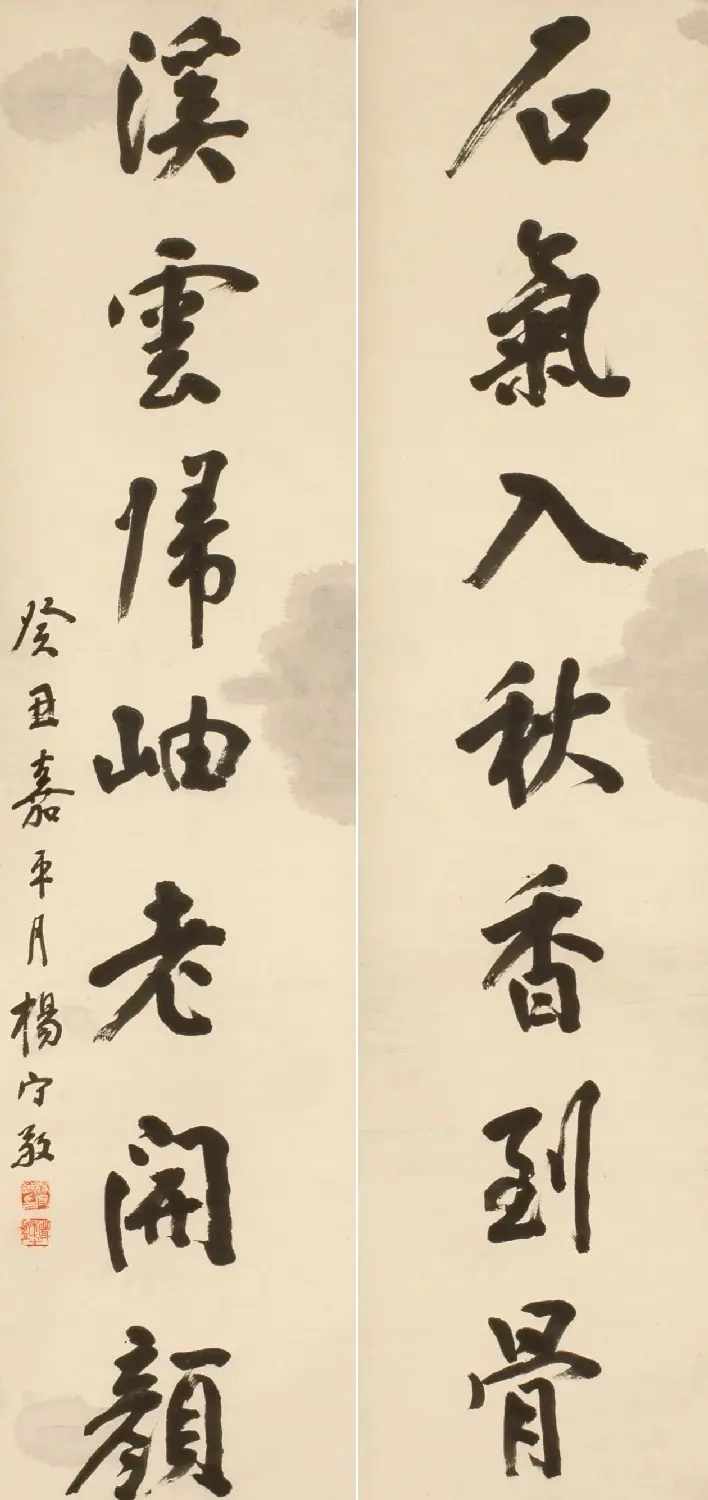 石氣入秋香到骨
溪雲帰岫老開顔
癸丑嘉平月楊守敬